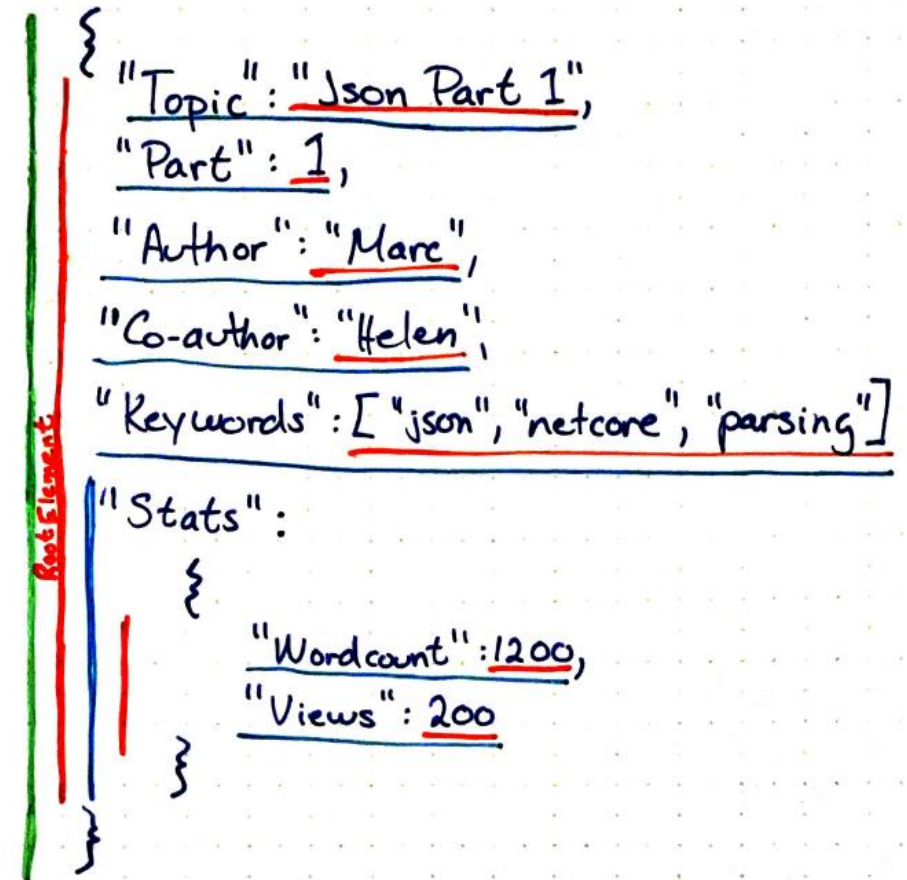 {
"Topic": "Json Part 1",
"Part": 1,
"Author": "Marc",
"Co-author": "Helen",
"Keywords": ["json", "netcore", "parsing"]
"Stats":
{
"Wordcount": 1200,
"Views": 200
}
}
RootElement